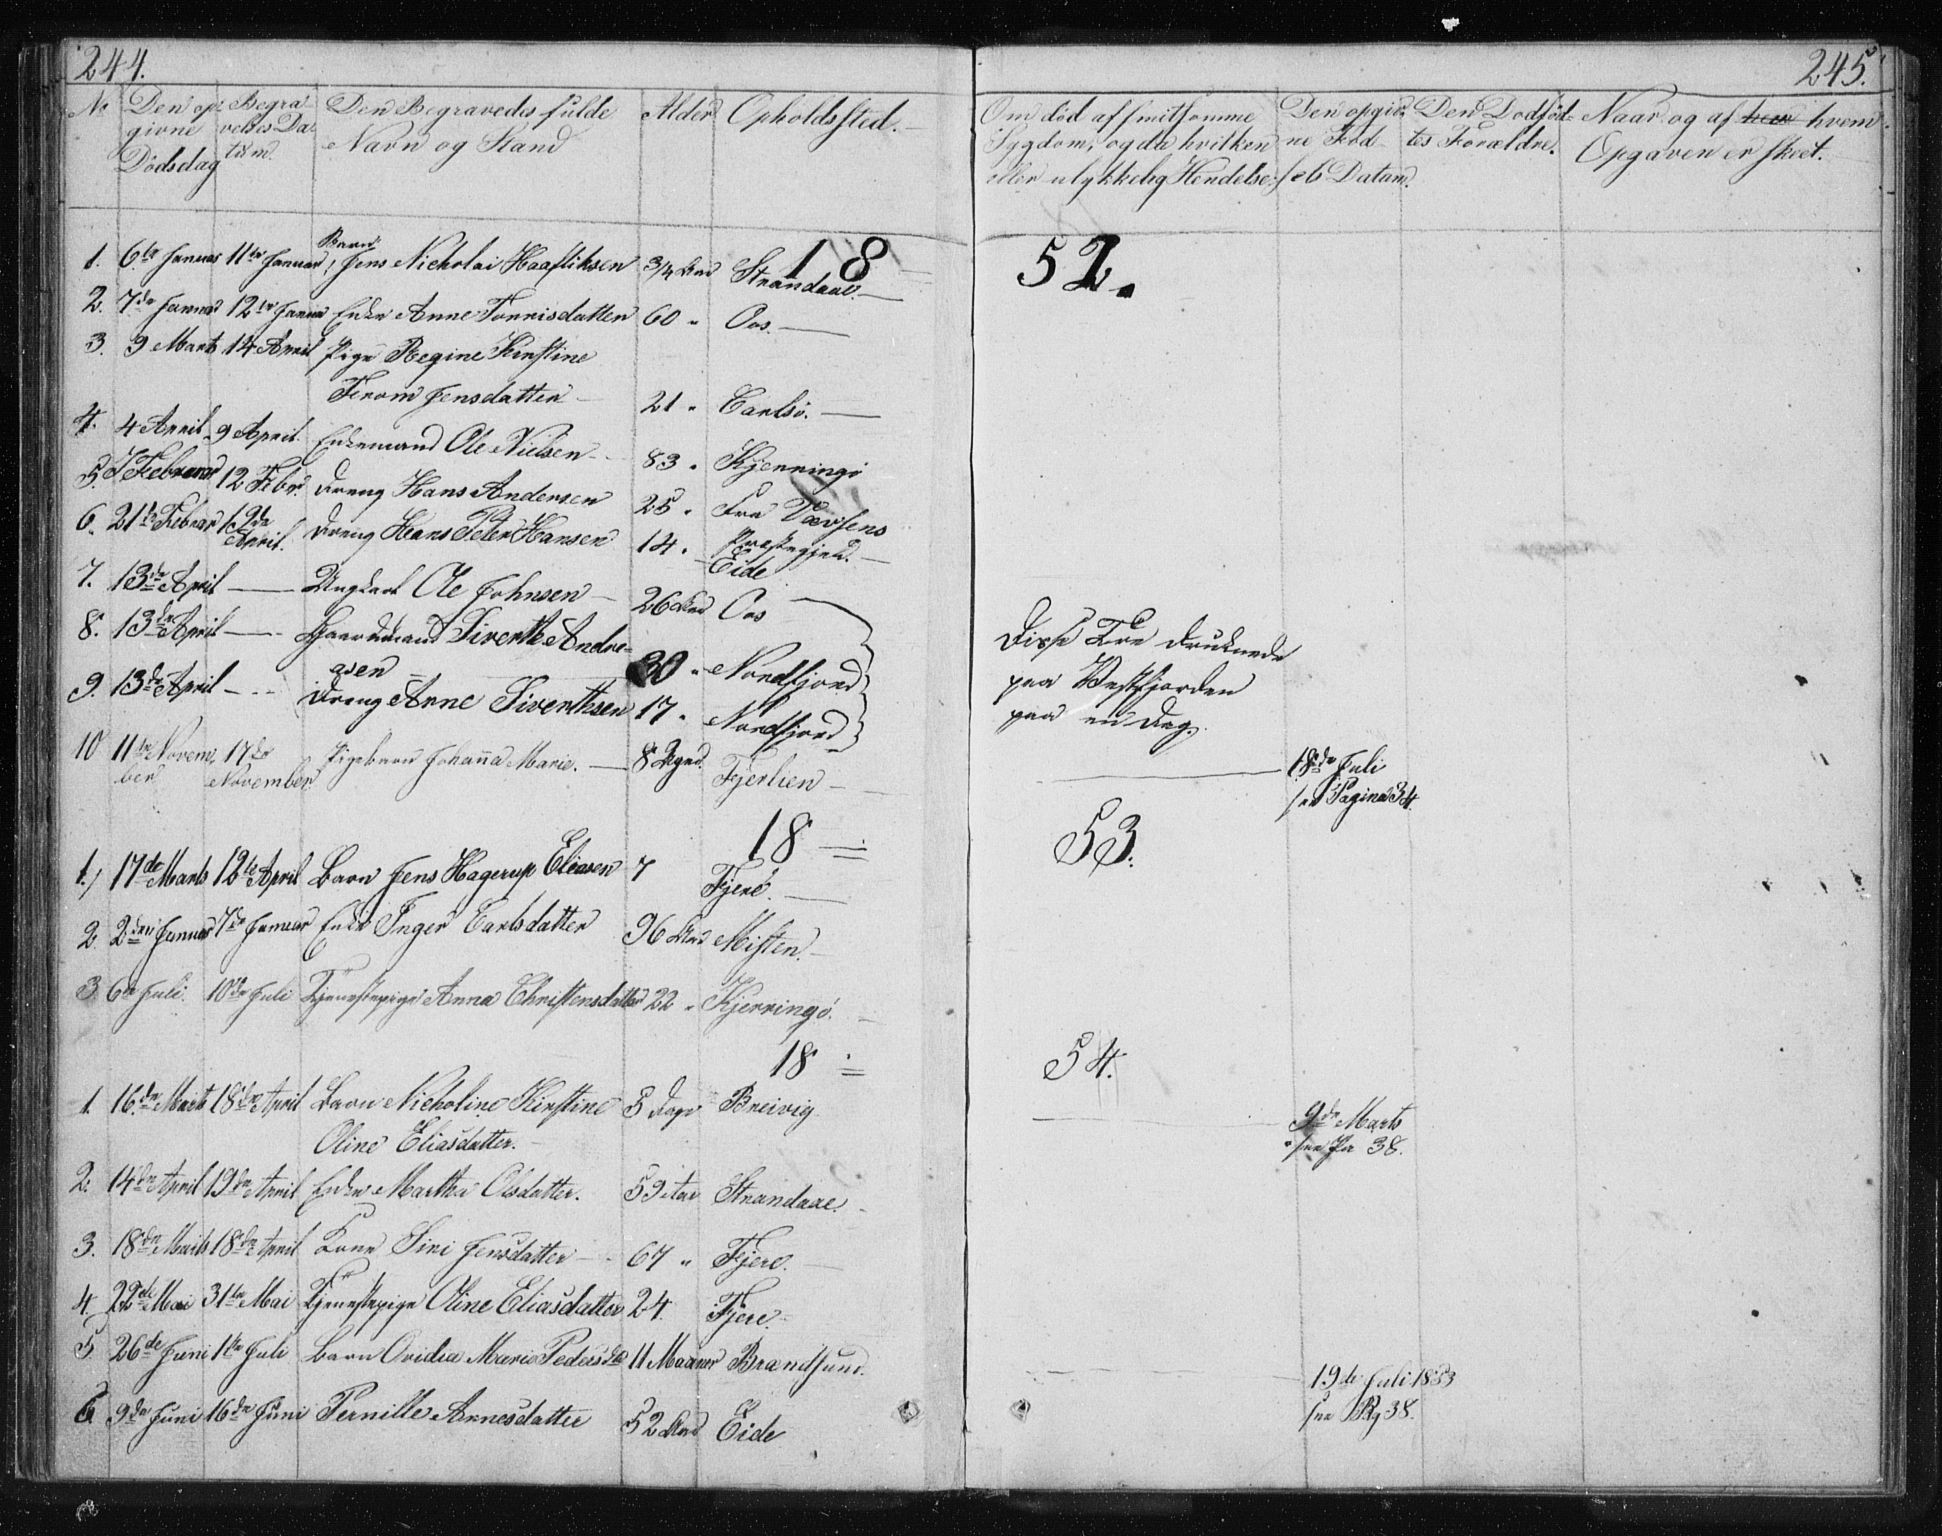 244.
245.
No Den op- Begra- Den Begravedes fulde Alder Opholdssted.
givne velses Da- Navn og Stand
Dødsdag tum
Om død af smitsomme Den opgiv- Den Dødfød- Naar og af hvem
Sygdom, og da hvilken ne Fød- tes Forældre. Opgaven er skeet.
eller ulykkelig Hendelse; sels Datum.
18 52.
Barn
1. 6te Januar 11te Januar Jens Nicholai Haagliksen 3/4 Aar Strandaae.
2. 7de Januar 12te Januar Enke Anne Tønnisdatter 60 " Oos.
3. 9 Marts 14 April Pige Regine Kirstine
Jensdatter 21 " Carlsö.
4. 4 April 9 April Enkemand Ole Nielsen 83 " Kjerringö
5. 7 Februar 12 Febr. Dreng Hans Andersen 25 " Fra Vævsens
Præstegjeld.
6. 21de Februar 19de Dreng Hans Peter Hansen 14 " Eide
April.
7. 13de April — Ungkarl Ole Johnsen 26 Aar Oos
8. 13de April — Gaardmand Siverth Andre-
asen 30 " Nordfjord
9. 13de April — Dreng Anne Siverthsen 17 " Nordfjord
Disse Tre druknede
paa Vestfjorden
paa en Dag.
10 11te Novem- 17de Pigebarn Johanna Marie. 8 Uger. Fjerlien
ber November
18de Juli
see Pagina 34.
18 53.
1. 17de Marts 12te April Barn Jens Hagerup Eliasen 7 Fjere.
2. 2den Januar 7de Januar Enke Inger Carlsdatter 96 Aar Misten.
3 6te Juli. 10de Juli Tjenestepige Anna Christensdatter 22 " Kjerringö.
18 54.
1. 16de Marts 18de April Barn Nicholine Kirstine 5 Dage Breivig
Oline Eliasdatter.
9de Marts
see Pa 38.
2. 14de April 19de April Enke Martha Olsdatter. 59 Aar Strandaae.
3. 18de Marts 18de April Kone Siri Jensdatter 67 " Fjere.
4. 22de Mai 31te Mai Tjenestepige Oline Eliasdatter 24. Fjere.
5 26de Juni 1te Juli Barn Ovidia Marie Pedersd. 11 Maaner Brændsund.
19de Juli 1853
see Pg 38.
6 9de Juni 16de Juni Pernille Annesdatter 52 Aar Eide